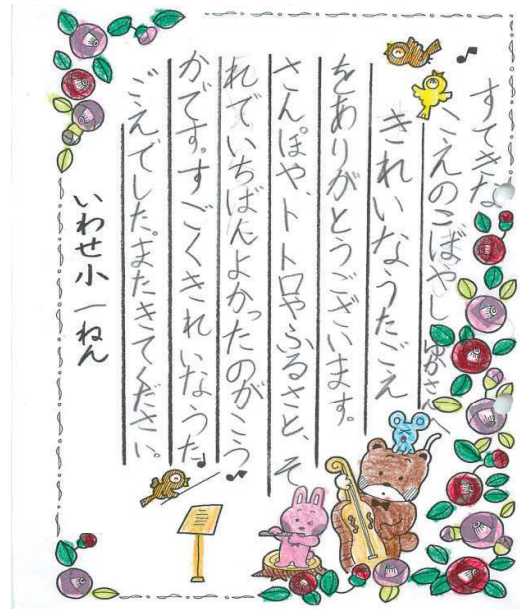 すてきな
くこえのこばやしゆかさんへ
きれいなうたごえ
をありがとうございます。
さんぽや、トトロやふるさと、そ
れでいちばんよかったのがこう
かです。すごくきれいなうた
ごえでした。またきてください。
いわせ小一ねん